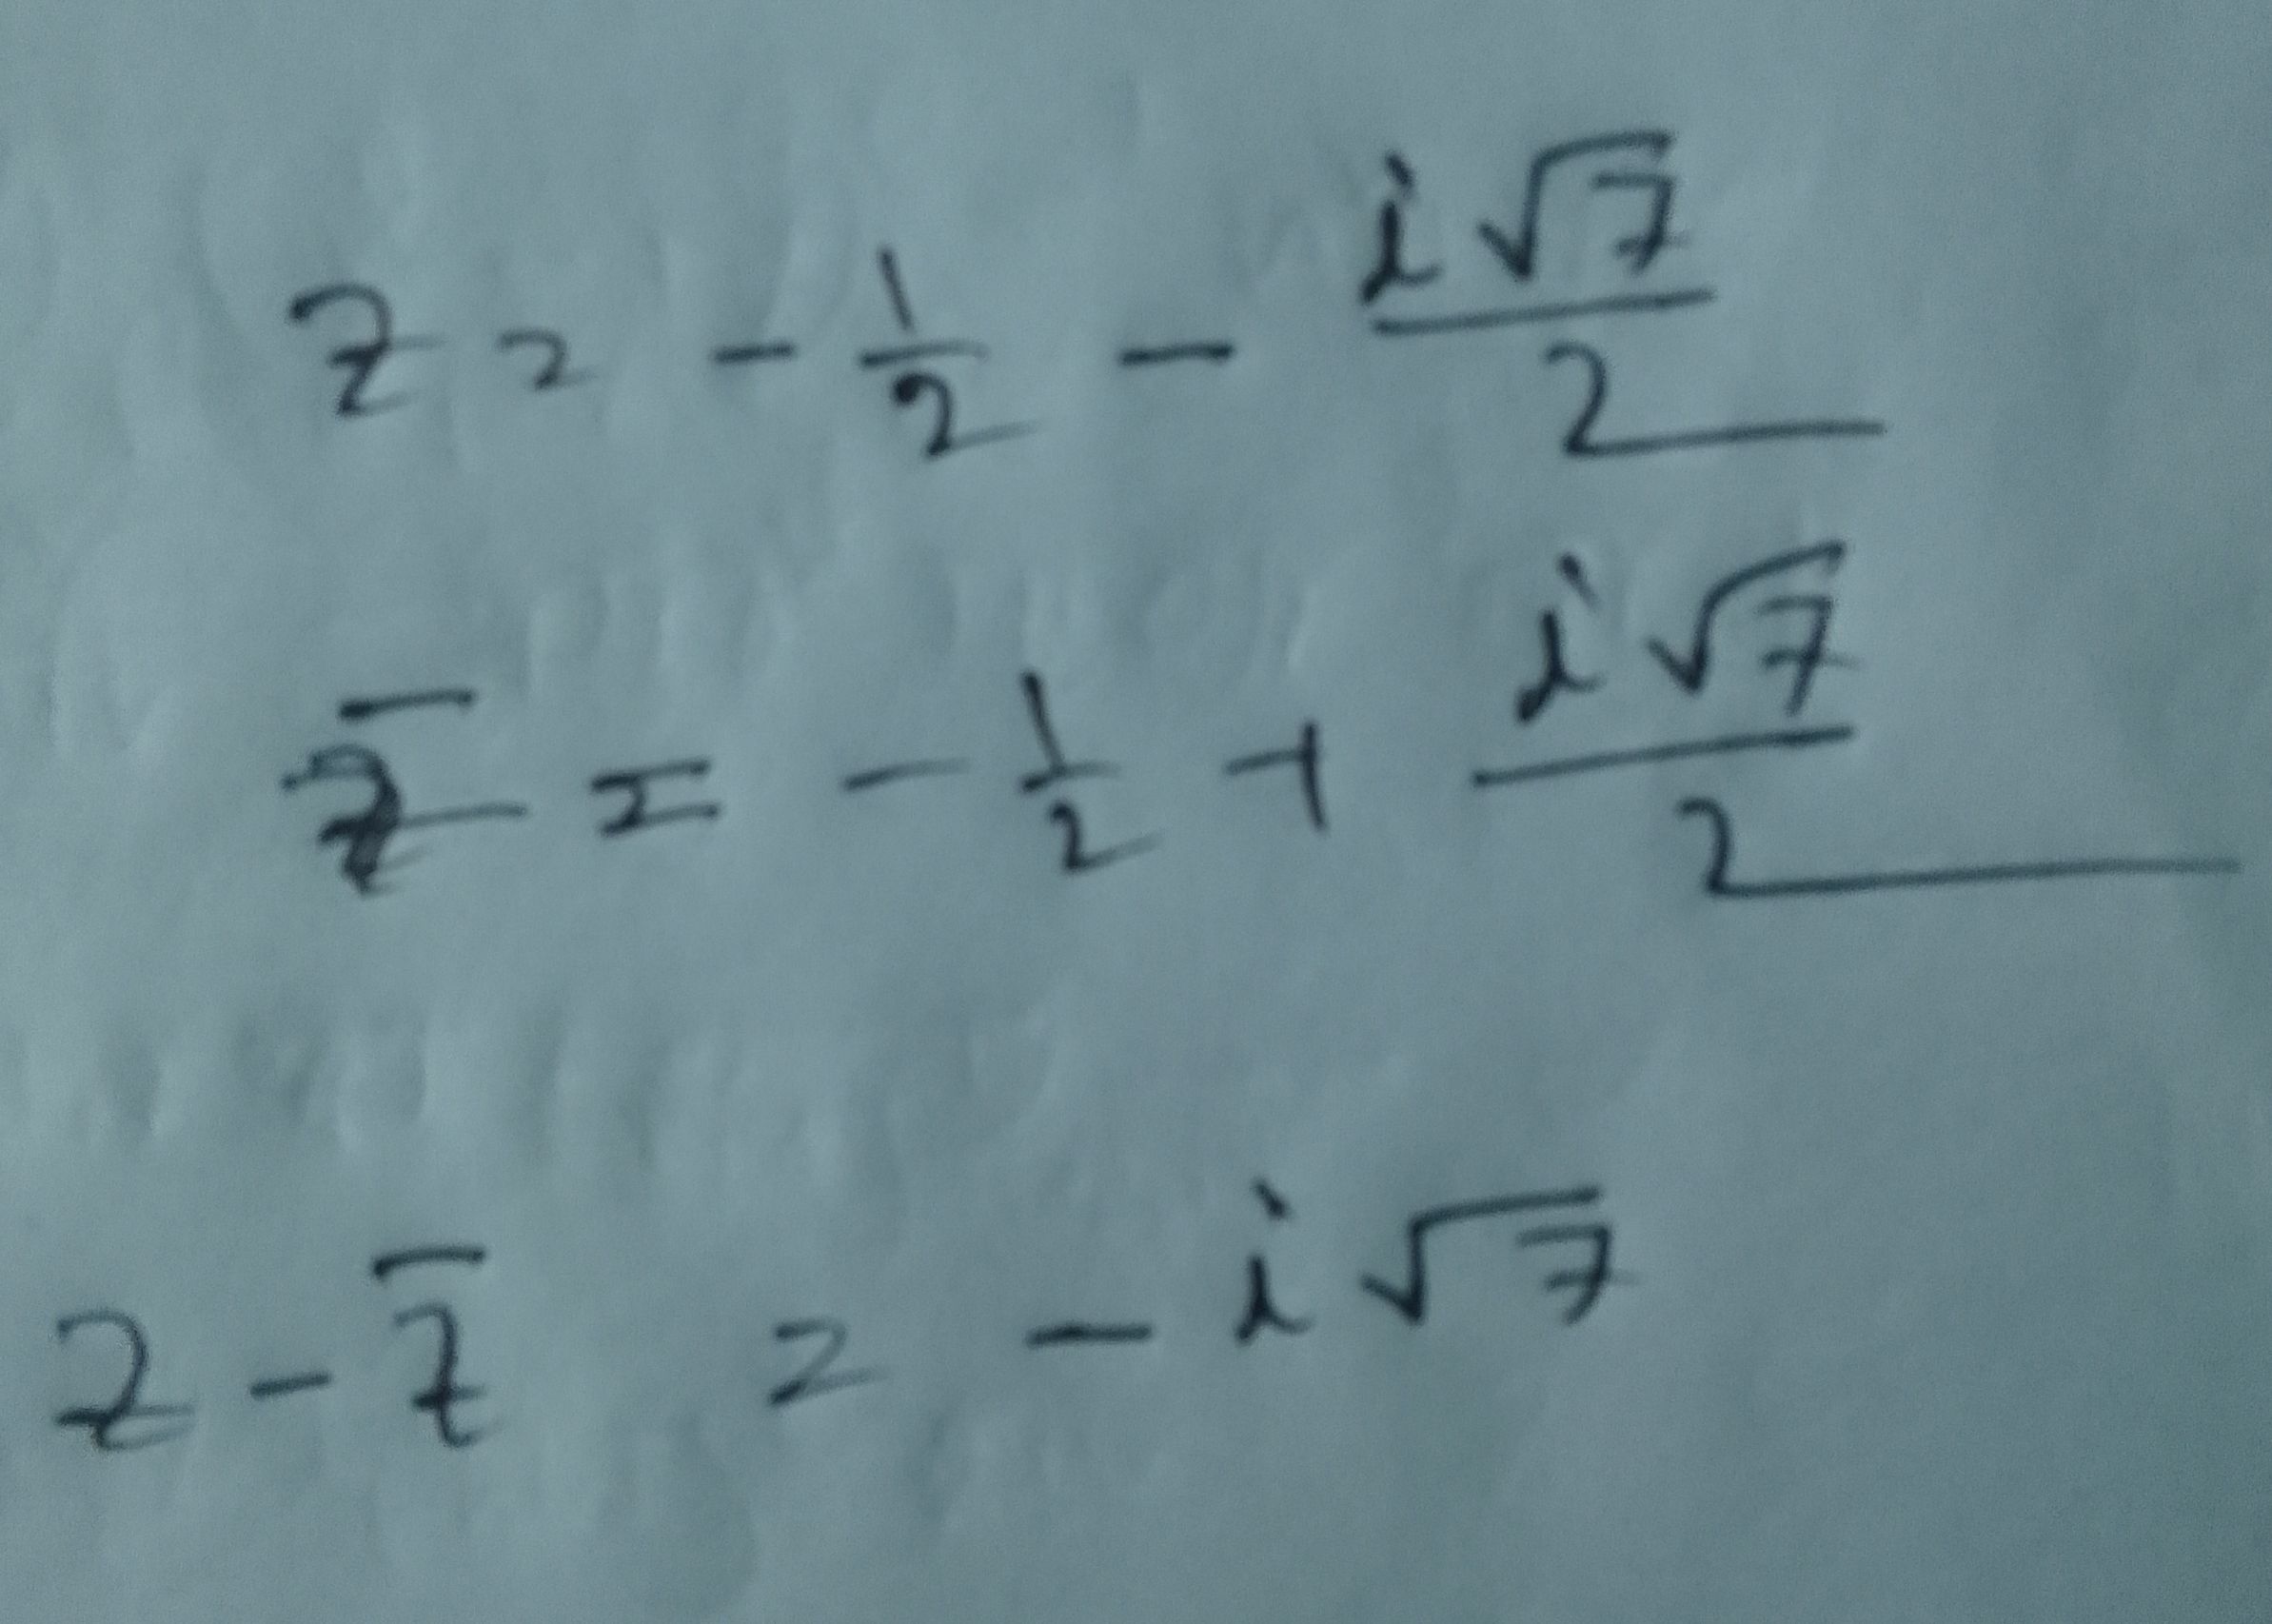 z = -1/2 - i√7/2
z̅ = -1/2 + i√7/2
z - z̅ = -i√7